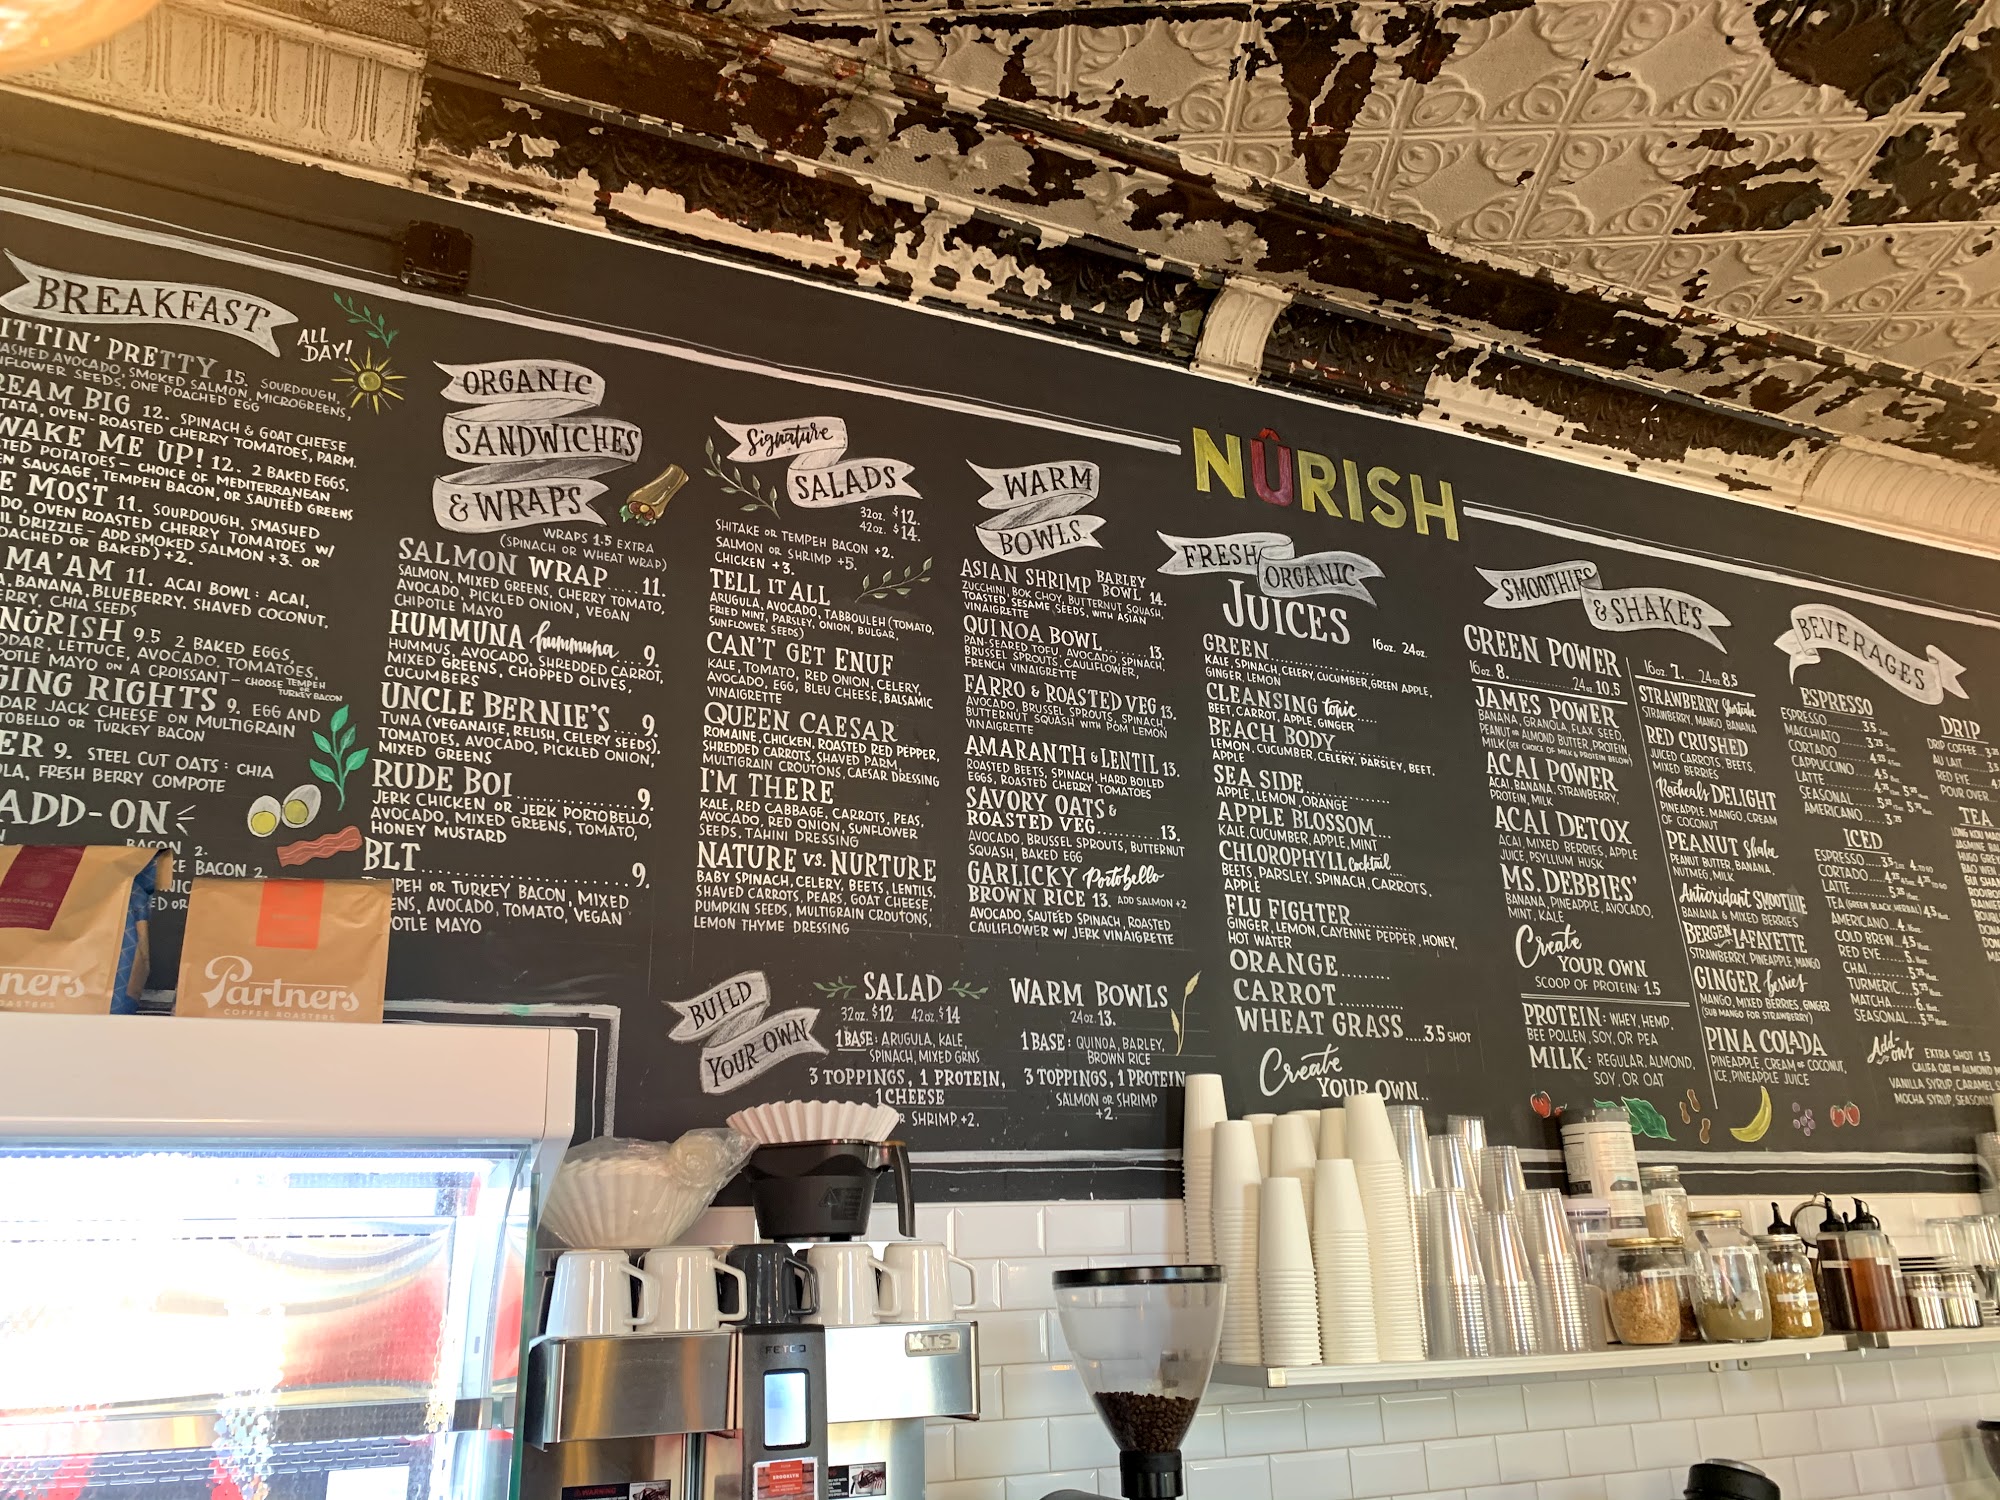 BREAKFAST
ALL
DAY!
ITTIN' PRETTY 15. SOURDOUGH,
ASHED AVOCADO, SMOKED SALMON, MICROGREENS,
FLOWER SEEDS, ONE POACHED EGG
REAM BIG 12. SPINACH & GOAT CHEESE
TATA, OVEN-ROASTED CHERRY TOMATOES, PARM.
WAKE ME UP! 12. 2 BAKED EGGS.
TED POTATOES - CHOICE OF MEDITERRANEAN
EN SAUSAGE, TEMPEH BACON, OR SAUTÉED GREENS
E MOST 11. SOURDOUGH, SMASHED
DO, OVEN ROASTED CHERRY TOMATOES W/
IL DRIZZLE - ADD SMOKED SALMON +3. OR
OACHED OR BAKED) +2.
MA'AM 11. ACAI BOWL: ACAI,
A, BANANA, BLUEBERRY, SHAVED COCONUT,
ERRY, CHIA SEEDS
NÛRISH 9.5 2 BAKED EGGS,
DDAR, LETTUCE, AVOCADO, TOMATOES,
POTLE MAYO ON A CROISSANT - CHOOSE TEMPEH
OR
TURKEY BACON
GING RIGHTS 9. EGG AND
DAR JACK CHEESE ON MULTIGRAIN
TOBELLO OR TURKEY BACON
ER 9. STEEL CUT OATS: CHIA
OLA, FRESH BERRY COMPOTE
ADD-ON
BACON 2.
KE BACON 2.
ORGANIC
SANDWICHES
& WRAPS
WRAPS 1.5 EXTRA
(SPINACH OR WHEAT WRAP)
SALMON WRAP.....11.
SALMON, MIXED GREENS, CHERRY TOMATO,
AVOCADO, PICKLED ONION, VEGAN
CHIPOTLE MAYO
HUMMUNA hummuna 9.
HUMMUS, AVOCADO, SHREDDED CARROT,
MIXED GREENS, CHOPPED OLIVES,
CUCUMBERS
UNCLE BERNIE'S...9.
TUNA (VEGANAISE, RELISH, CELERY SEEDS),
TOMATOES, AVOCADO, PICKLED ONION,
MIXED GREENS
RUDE BOI..............9.
JERK CHICKEN OR JERK PORTOBELLO,
AVOCADO, MIXED GREENS, TOMATO,
HONEY MUSTARD
BLT........................9.
MPEH OR TURKEY BACON, MIXED
ENS, AVOCADO, TOMATO, VEGAN
OTLE MAYO
Signature
SALADS
32oz. $12.
42oz. $14.
SHITAKE OR TEMPEH BACON +2.
SALMON OR SHRIMP +5.
CHICKEN +3.
TELL IT ALL
ARUGULA, AVOCADO, TABBOULEH (TOMATO,
FRIED MINT, PARSLEY, ONION, BULGAR,
SUNFLOWER SEEDS)
CAN'T GET ENUF
KALE, TOMATO, RED ONION, CELERY,
AVOCADO, EGG, BLEU CHEESE, BALSAMIC
VINAIGRETTE
QUEEN CAESAR
ROMAINE, CHICKEN, ROASTED RED PEPPER,
SHREDDED CARROTS, SHAVED PARM,
MULTIGRAIN CROUTONS, CAESAR DRESSING
I'M THERE
KALE, RED CABBAGE, CARROTS, PEAS,
AVOCADO, RED ONION, SUNFLOWER
SEEDS, TAHINI DRESSING
NATURE vs. NURTURE
BABY SPINACH, CELERY, BEETS, LENTILS,
SHAVED CARROTS, PEARS, GOAT CHEESE,
PUMPKIN SEEDS, MULTIGRAIN CROUTONS,
LEMON THYME DRESSING
WARM
BOWLS
ASIAN SHRIMP BARLEY BOWL 14.
ZUCCHINI, BOK CHOY, BUTTERNUT SQUASH,
TOASTED SESAME SEEDS, WITH ASIAN
VINAIGRETTE
QUINOA BOWL........13.
PAN-SEARED TOFU, AVOCADO, SPINACH,
BRUSSEL SPROUTS, CAULIFLOWER,
FRENCH VINAIGRETTE
FARRO & ROASTED VEG 13.
AVOCADO, BRUSSEL SPROUTS, SPINACH,
BUTTERNUT SQUASH WITH POM LEMON
VINAIGRETTE
AMARANTH & LENTIL 13.
ROASTED BEETS, SPINACH, HARD BOILED
EGGS, ROASTED CHERRY TOMATOES
SAVORY OATS &
ROASTED VEG.........13.
AVOCADO, BRUSSEL SPROUTS, BUTTERNUT
SQUASH, BAKED EGG
GARLICKY Portobello
BROWN RICE 13. ADD SALMON +2
AVOCADO, SAUTÉED SPINACH, ROASTED
CAULIFLOWER W/ JERK VINAIGRETTE
BUILD
YOUR OWN
SALAD
32oz. $12 42oz. $14
1 BASE: ARUGULA, KALE,
SPINACH, MIXED GRNS
3 TOPPINGS, 1 PROTEIN,
1 CHEESE
OR SHRIMP +2.
WARM BOWLS
24oz. 13.
1 BASE: QUINOA, BARLEY,
BROWN RICE
3 TOPPINGS, 1 PROTEIN
SALMON OR SHRIMP
+2.
NÛRISH
FRESH
ORGANIC
JUICES
16oz. 24oz.
GREEN
KALE, SPINACH, CELERY, CUCUMBER, GREEN APPLE,
GINGER, LEMON
CLEANSING tonic.....
BEET, CARROT, APPLE, GINGER
BEACH BODY
LEMON, CUCUMBER, CELERY, PARSLEY, BEET,
APPLE
SEA SIDE
APPLE, LEMON, ORANGE
APPLE BLOSSOM...
KALE, CUCUMBER, APPLE, MINT
CHLOROPHYLL Cocktail
BEETS, PARSLEY, SPINACH, CARROTS,
APPLE
FLU FIGHTER
GINGER, LEMON, CAYENNE PEPPER, HONEY,
HOT WATER
ORANGE
CARROT
WHEAT GRASS....3.5 SHOT
Create
YOUR OWN..
SMOOTHIES
& SHAKES
GREEN POWER
16oz. 8. 24oz 10.5
JAMES POWER
BANANA, GRANOLA, FLAX SEED,
PEANUT OR ALMOND BUTTER, PROTEIN,
MILK (SEE CHOICE OF MILK & PROTEIN BELOW)
ACAI POWER
ACAI, BANANA, STRAWBERRY,
PROTEIN, MILK
ACAI DETOX
ACAI, MIXED BERRIES, APPLE
JUICE, PSYLLIUM HUSK
MS. DEBBIES'
BANANA, PINEAPPLE, AVOCADO,
MINT, KALE
Create
YOUR OWN
SCOOP OF PROTEIN: 1.5
PROTEIN: WHEY, HEMP,
BEE POLLEN, SOY, OR PEA
MILK: REGULAR, ALMOND,
SOY, OR OAT
16oz 7. 24oz 8.5
STRAWBERRY Shortcake
STRAWBERRY, MANGO, BANANA
RED CRUSHED
JUICED CARROTS, BEETS,
MIXED BERRIES
Racheals DELIGHT
PINEAPPLE, MANGO, CREAM
OF COCONUT
PEANUT Shake
PEANUT BUTTER, BANANA,
NUTMEG, MILK
Antioxidant SMOOTHIE
BANANA & MIXED BERRIES
BERGEN LAFAYETTE
STRAWBERRY, PINEAPPLE, MANGO
GINGER berries
MANGO, MIXED BERRIES, GINGER
(SUB MANGO FOR STRAWBERRY)
PINA COLADA
PINEAPPLE, CREAM OF COCONUT,
ICE, PINEAPPLE JUICE
BEVERAGES
ESPRESSO
ESPRESSO
MACCHIATO
CORTADO
CAPPUCCINO
LATTE
SEASONAL
AMERICANO
ICED
ESPRESSO
CORTADO
LATTE
TEA (GREEN, BLACK, HERBAL)
AMERICANO
COLD BREW
RED EYE
CHAI
TURMERIC
MATCHA
SEASONAL
DRIP
DRIP COFFEE
AU LAIT
RED EYE
POUR OVER
TEA
Add-ons
EXTRA SHOT 1.5
CALIFA OAT OR ALMOND
VANILLA SYRUP, CARAMEL
MOCHA SYRUP, SEASON
Partners
COFFEE ROASTERS
ners
FETCO
KTS
BROOKLYN
WARNING